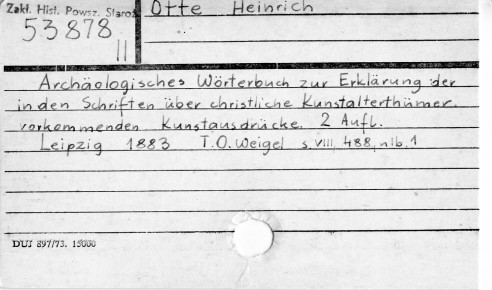 Zakł. Hist. Powsz. Staroż.
Otte Heinrich
53878
II
Archäologisches Wörterbuch zur Erklärung der
in den Schriften über christliche Kunstalterthümer
vorkommenden Kunstausdrücke. 2 Aufl.
Leipzig 1883 T.O. Weigel s. VIII, 488, nlb. 1
DUJ 897/73. 15000